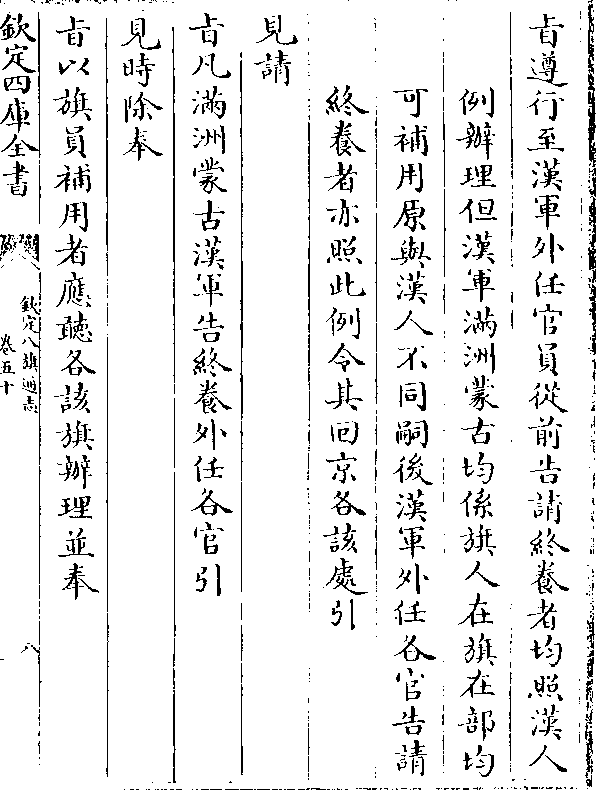 旨遵行至漢軍外任官員從前告請終養者均照漢人
例辦理但漢軍滿洲蒙古均係旗人在旗在部均
可補用原與漢人不同嗣後漢軍外任各官告請
終養者亦照此例令其回京各該處引
見請
旨凡滿洲蒙古漢軍告終養外任各官引
見時除奉
旨以旗員補用者應聽各該旗辦理並奉
欽定四庫全書
欽定八旗通志
卷五十
八